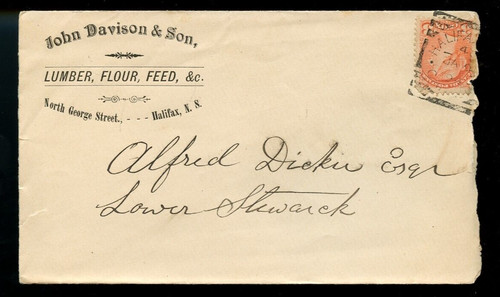 John Davison & Son,
LUMBER, FLOUR, FEED, &c.
North George Street., - - - Halifax, N. S.
Alfred Dickie Esqr
Lower Stewiack